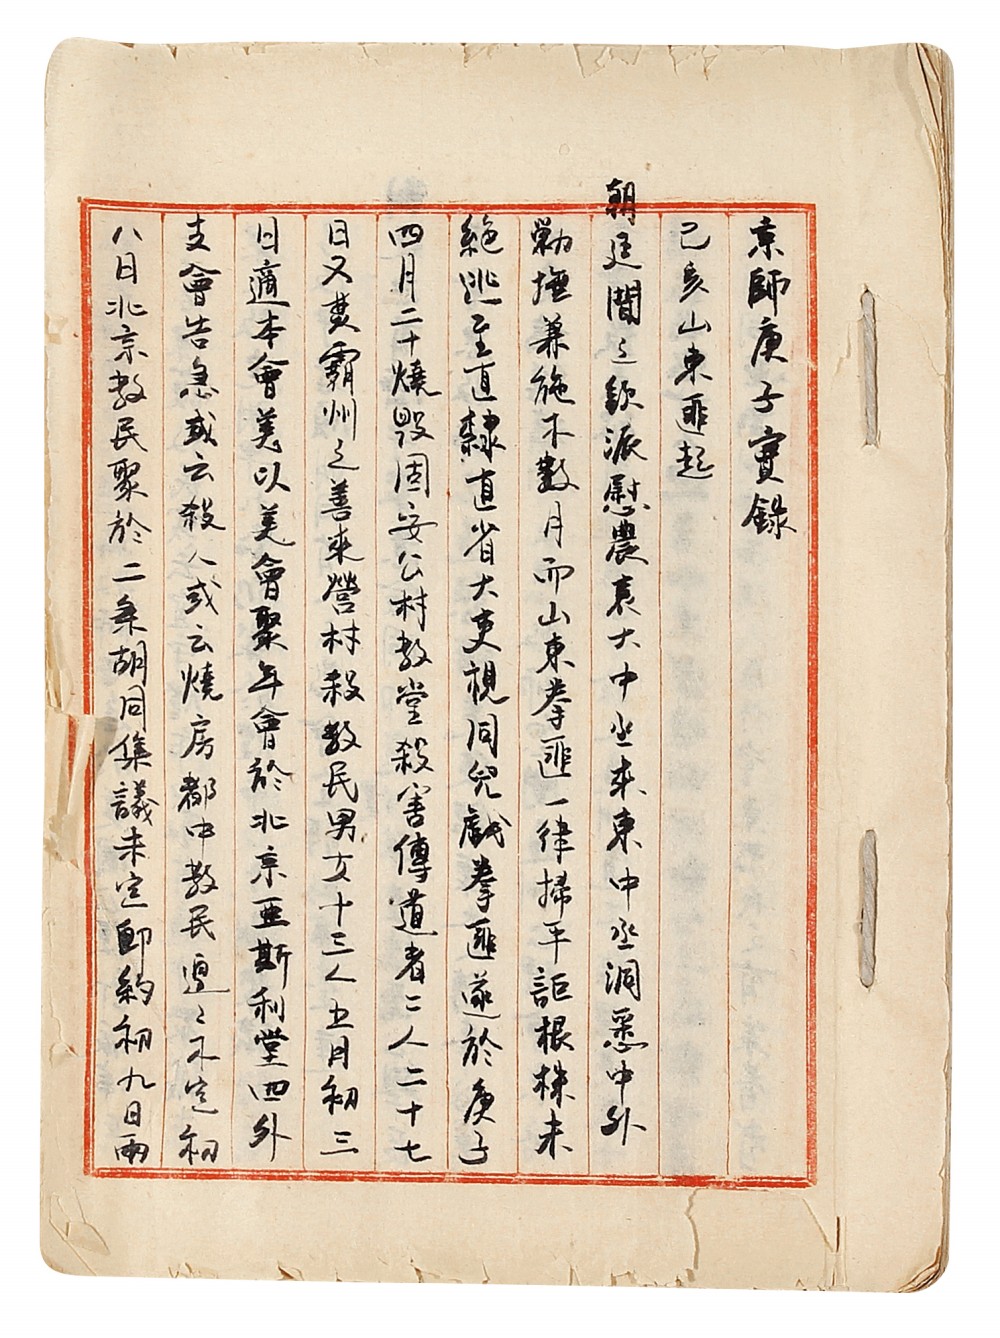 京師庚子實錄
己亥山東匪起
朝廷聞之欽派慰農袁大中丞來東中丞洞悉中外
勦撫兼施不數月而山東拳匪一律掃平詎根株未
絕逃至直隸直省大吏視同兒戲拳匪遂於庚子
四月二十燒毀固安公村教堂殺害傳道者二人二十七
日又焚霸州之善來營村殺教民男女十三人五月初三
日適本會美以美會聚年會於北京亞斯利堂四外
支會告急或云殺人或云燒房都中教民遑遑不定初
八日北京教民聚於二条胡同集議未定即約初九日兩